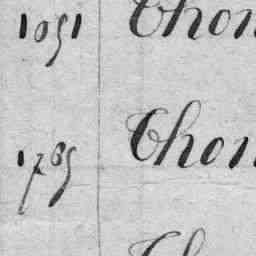 1051 Thom
1785 Thom